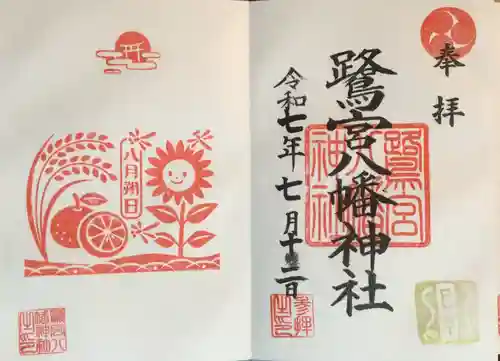 奉拝
鷺宮八幡神社
令和七年七月十二日
鷺宮
神社
参拝
之印
八月朔日